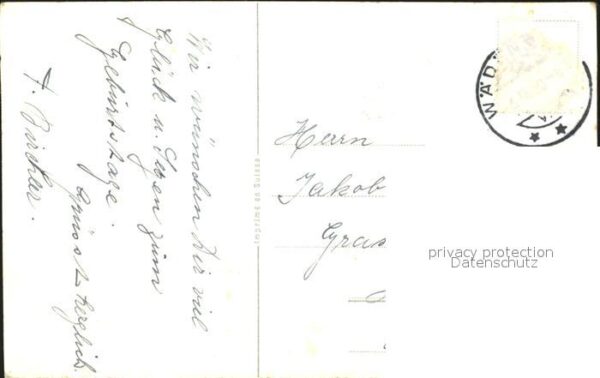 Wir wünschen Dir viel
Glück u. Segen zum
Geburtstage.
Grüsst herzlich
F. Bircher.
Imprimé en Suisse
WÄD
Herrn
Jakob
Gras
privacy protection
Datenschutz